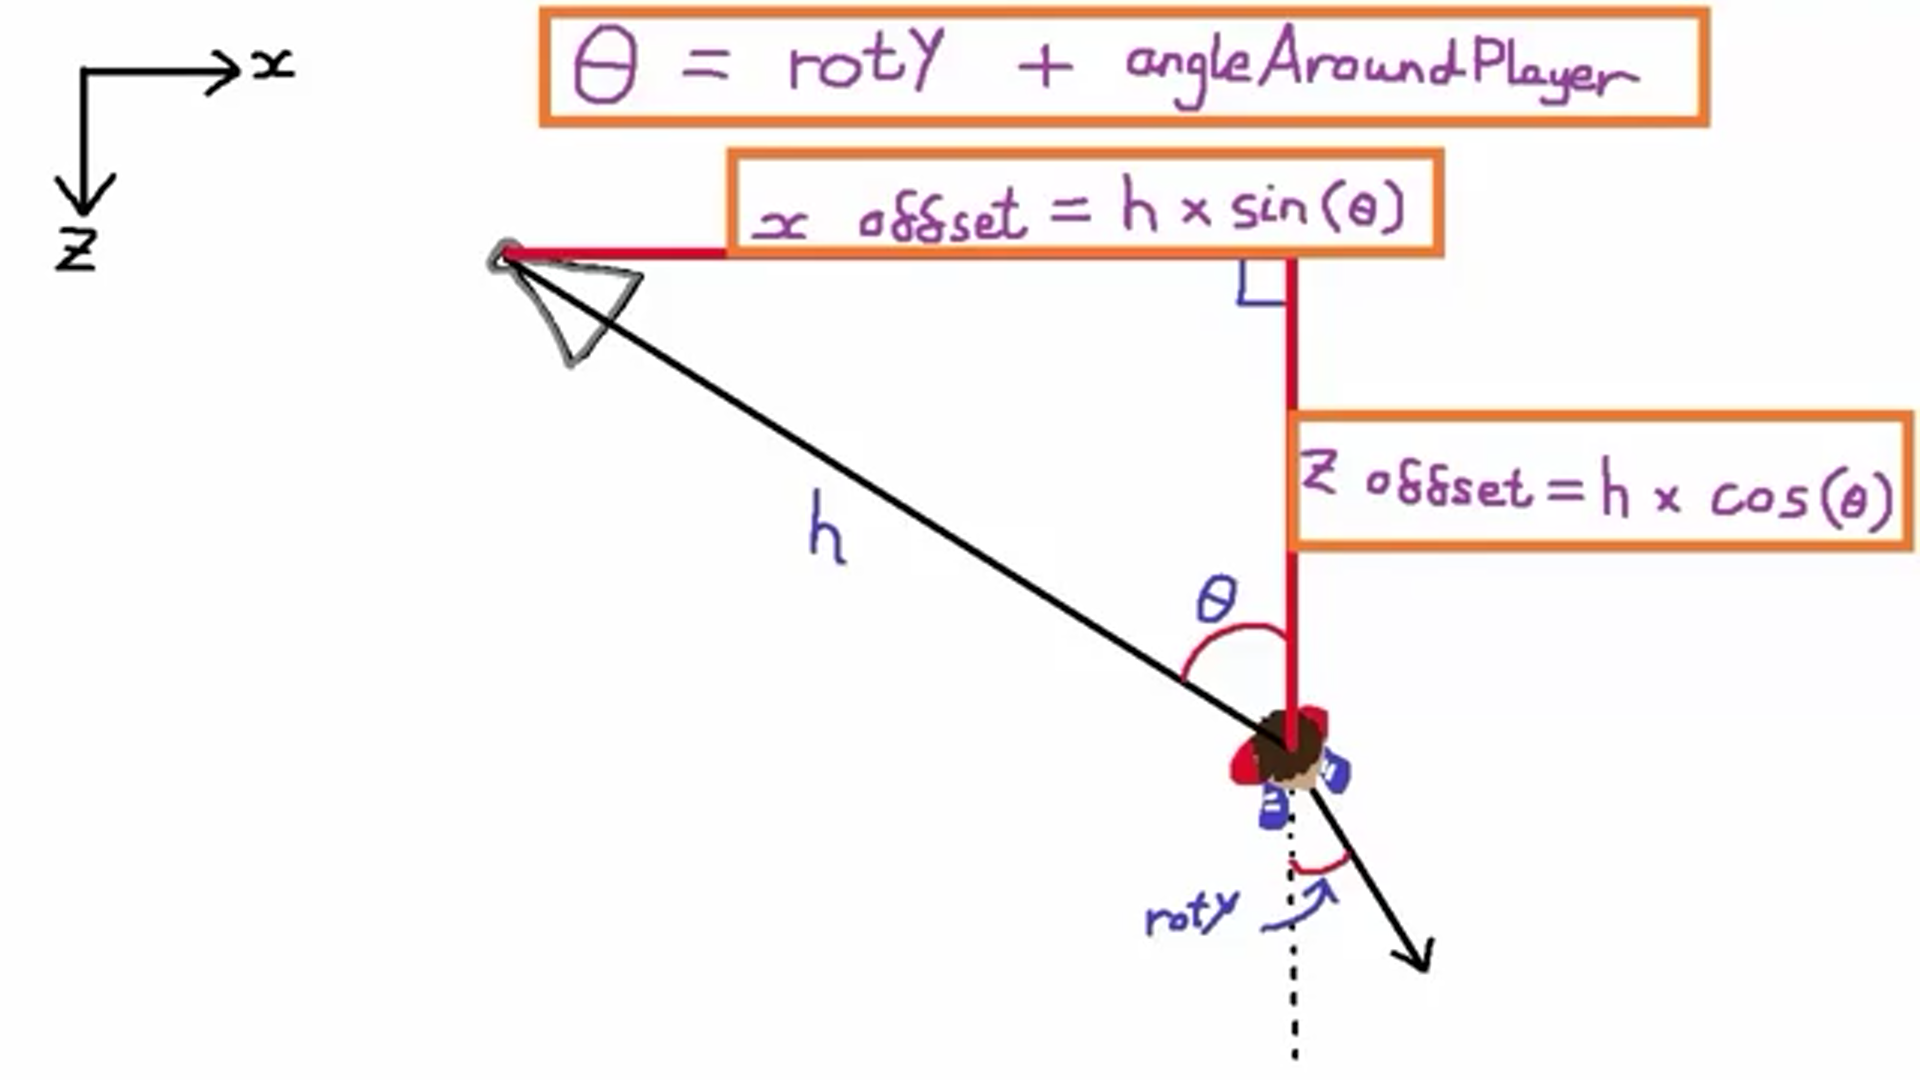 θ = rotY + angleAroundPlayer
x
x offset = h × sin(θ)
z
z offset = h × cos(θ)
h
θ
rotY